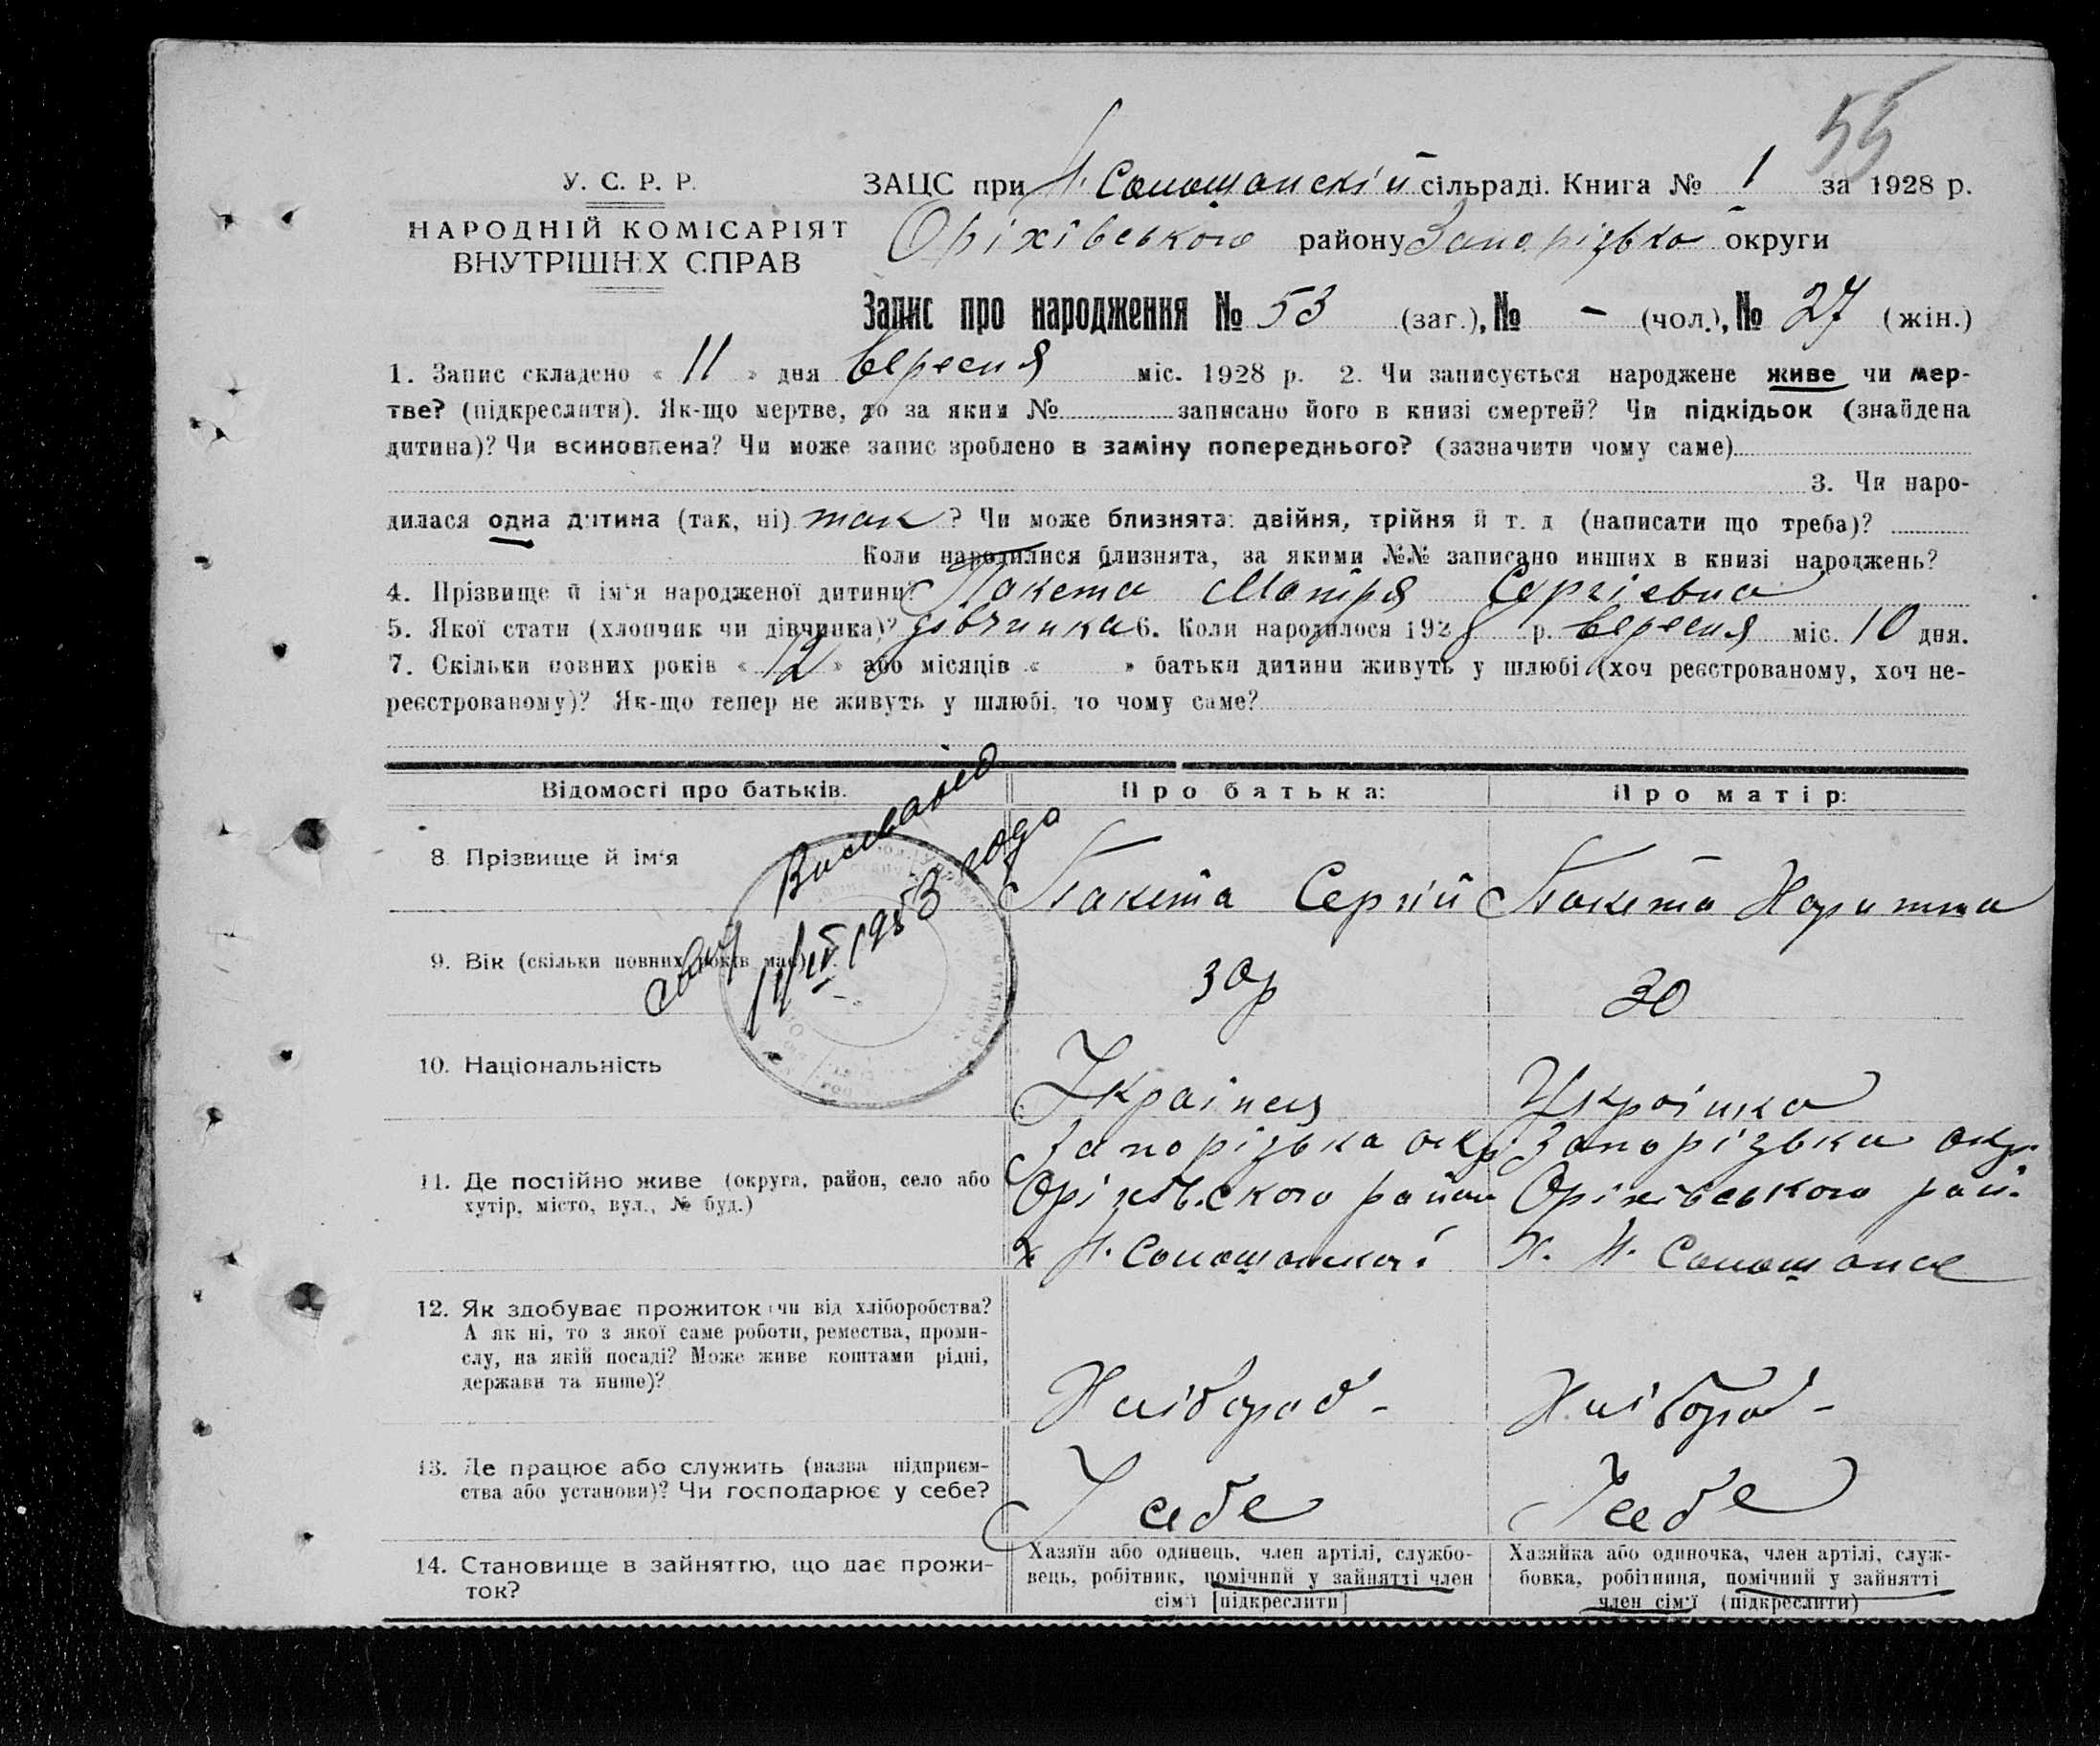 55
У. С. Р. Р.
НАРОДНІЙ КОМІСАРІЯТ
ВНУТРІШНІХ СПРАВ
ЗАЦС при Н. Солошанскій сільраді. Книга № 1 за 1928 р.
Оріхівського району Запорізька округи
Запис про народження № 53 (заг.), № - (чол.), № 27 (жін.)
1. Запис складено « 11 » дня вересня міс. 1928 р. 2. Чи записується народжене живе чи мер-
тве? (підкреслити). Як-що мертве, то за яким № записано його в книзі смертей? Чи підкідьок (знайдена
дитина)? Чи всиновлена? Чи може запис зроблено в заміну попереднього? (зазначити чому саме)
3. Чи наро-
дилася одна дитина (так, ні) так ? Чи може близнята: двійня, трійня й т. д (написати що треба)?
Коли народилися близнята, за якими №№ записано инших в книзі народжень?
4. Прізвище й ім'я народженої дитини? Пакета Мотря Сергіевна
5. Якої стати (хлопчик чи дівчинка)? дівчинка 6. Коли народилося 1928 р. вересня міс. 10 дня.
7. Скільки повних років « 12 » або місяців « » батьки дитини живуть у шлюбі (хоч реєстрованому, хоч не-
реєстрованому)? Як-що тепер не живуть у шлюбі, то чому саме?
Відомості про батьків. Про батька: Про матір:
8 Прізвище й ім'я Пакета Сергій Пакета Харитта
9. Вік (скільки повних років має) 30 р 30
10. Національність Українец Українка
11. Де постійно живе (округа, район, село або
хутір, місто, вул., № буд.)
Запорізька окр Запорізька окр.
Оріхівского район Оріхівського рай.
х Н. Солошанскої х. Н. Солошансе
12. Як здобуває прожиток чи від хліборобства?
А як ні, то з якої саме роботи, ремества, проми-
слу, на якій посаді? Може живе коштами рідні,
держави та инше)?
Хлібороб - Хлібороб -
13. Де працює або служить (назва підприєм-
ства або установи)? Чи господарює у себе?
У себе У себе
14. Становище в зайняттю, що дає прожи-
ток?
Хазяїн або одинець, член артілі, службо-
вець, робітник, помічний у зайнятті член
сім'ї [підкреслити]
Хазяйка або одиночка, член артілі, служ-
бовка, робітниця, помічний у зайнятті
член сім'ї (підкреслити)
11/IV 1953 года